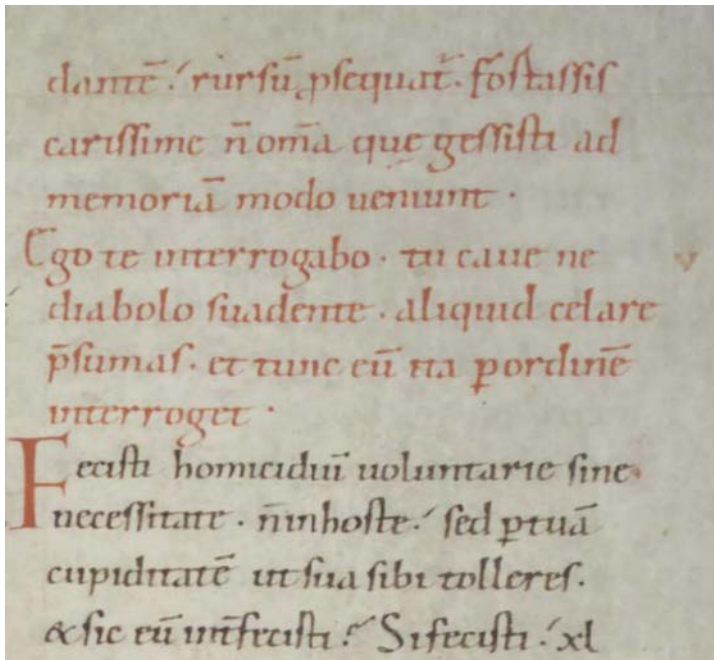 dantē. rursū psequat̄. fostassis
carissime n̄ om̄a que gessisti ad
memoriā modo ueniunt .
Ego te interrogabo . tu caue ne
diabolo suadente . aliquid celare
p̄sumas . et tunc eū ita ꝑ ordinē
interroget .
Fecisti homicidiū uoluntarie sine
necessitate . n̄ in hoste . sed ꝑ tuā
cupiditatē ut sua sibi tolleres .
& sic eū int̄fecisti . Si fecisti . xl